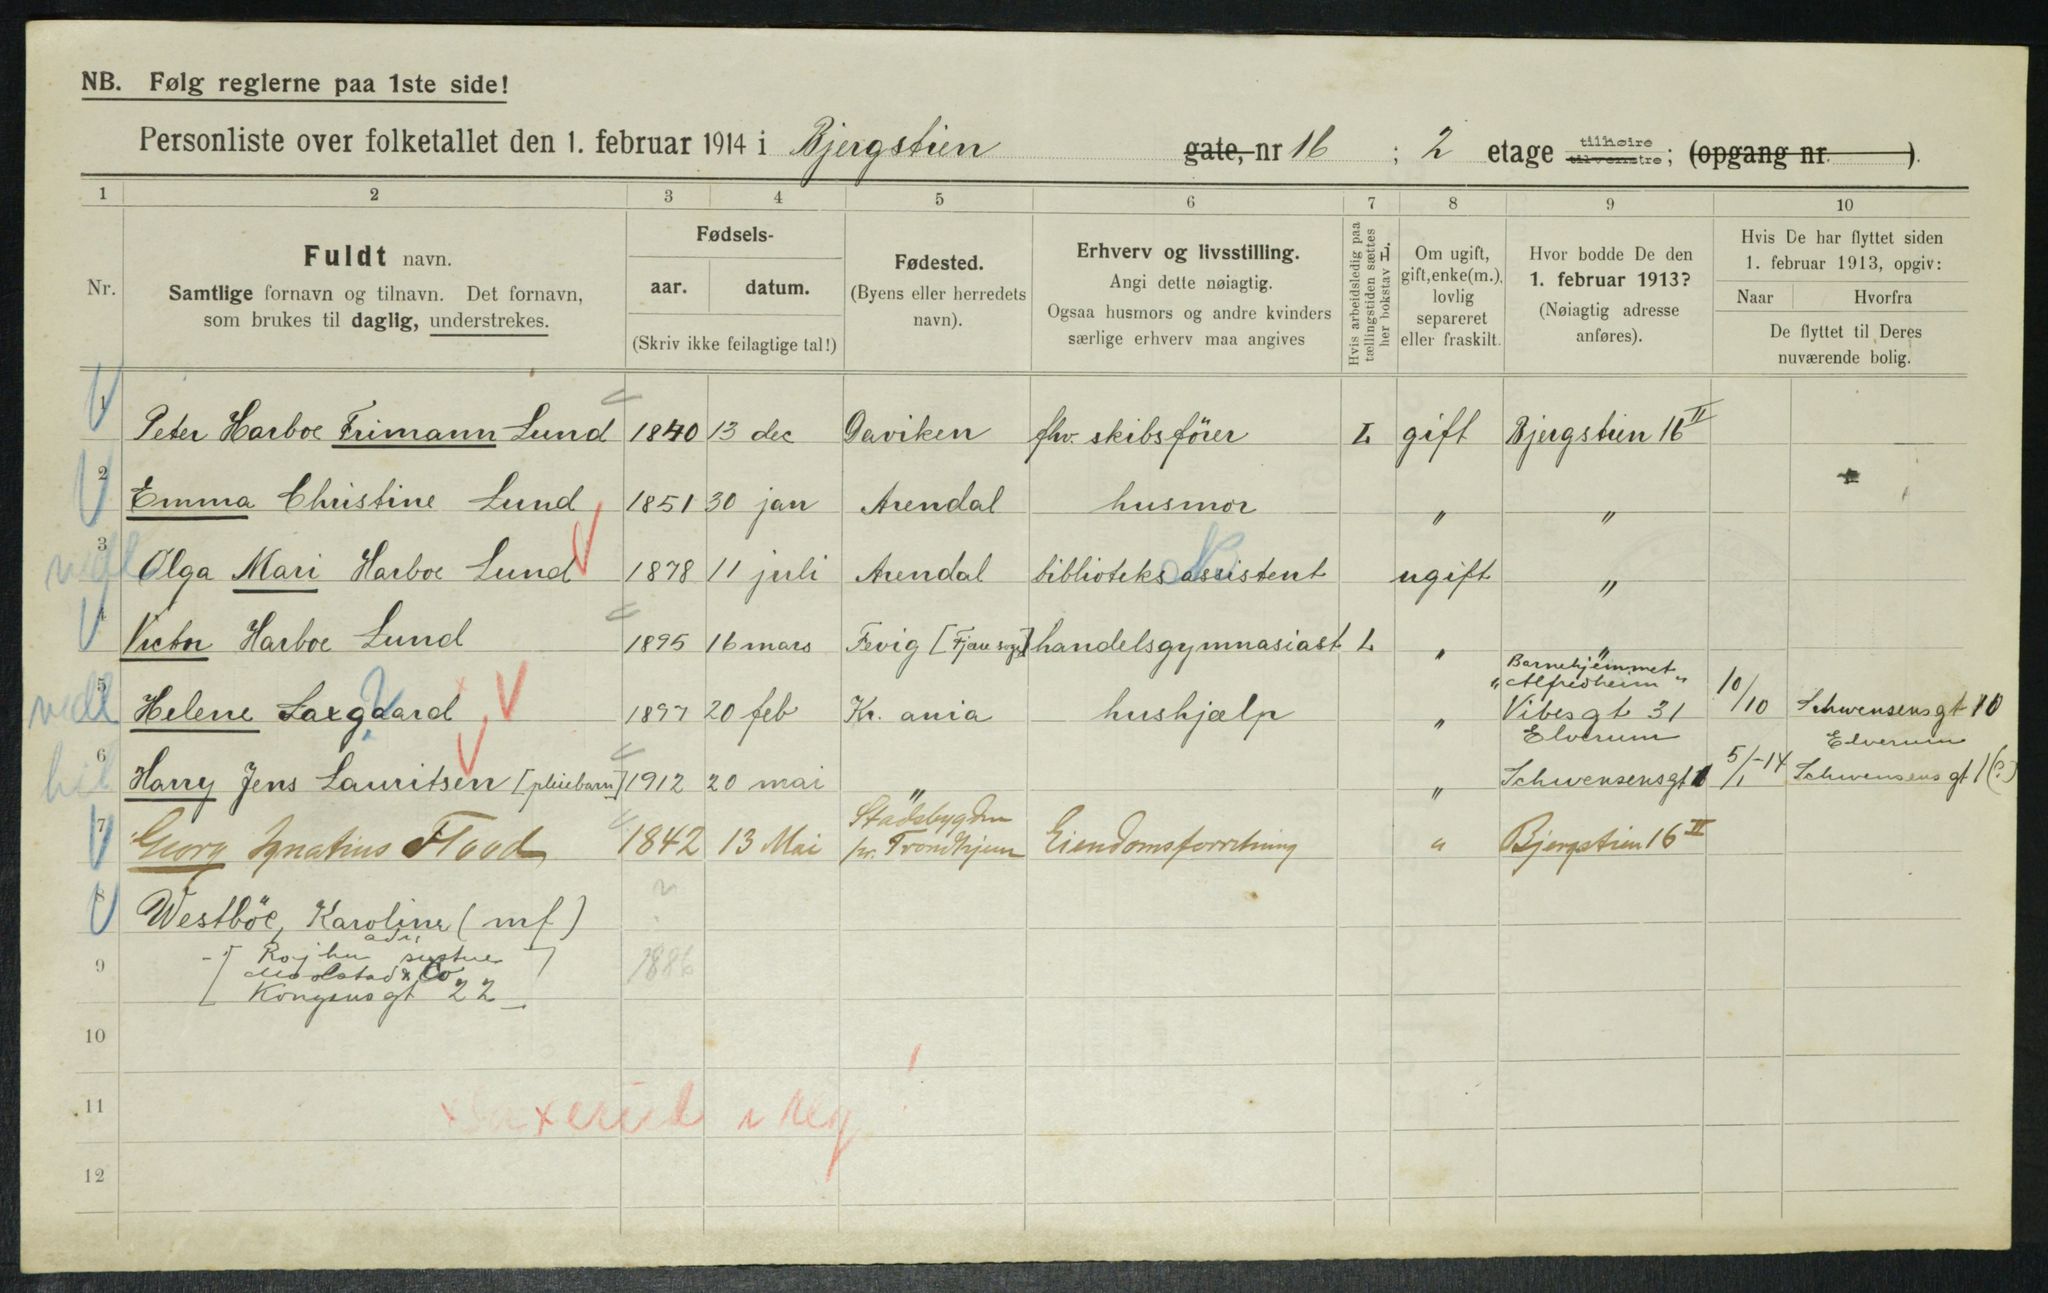 NB. Følg reglerne paa 1ste side!
Personliste over folketallet den 1. februar 1914 i Bjergstien gate, nr 16 ; 2 etage tilhøire tilvenstre; (opgang nr. ).
1 2 3 4 5 6 7 8 9 10
Nr.
Fuldt navn.
Samtlige fornavn og tilnavn. Det fornavn,
som brukes til daglig, understrekes.
Fødsels-
aar. datum.
(Skriv ikke feilagtige tal!)
Fødested.
(Byens eller herredets
navn).
Erhverv og livsstilling.
Angi dette nøiagtig.
Ogsaa husmors og andre kvinders
særlige erhverv maa angives
Hvis arbeidsledig paa
tællingstiden sættes
her bokstav L.
Om ugift,
gift, enke(m.),
lovlig
separeret
eller fraskilt.
Hvor bodde De den
1. februar 1913?
(Nøiagtig adresse
anføres).
Hvis De har flyttet siden
1. februar 1913, opgiv:
Naar Hvorfra
De flyttet til Deres
nuværende bolig.
1 Peter Harboe Frimann Lund 1840 13 dec Daviken fhv. skibsfører L gift Bjergstien 16 II
2 Emma Christine Lund 1851 30 jan Arendal husmor " "
3 Olga Mari Harboe Lund 1878 11 juli Arendal biblioteksassistent ugift "
4 Victor Harboe Lund 1895 16 mars Fevig [Fjære sogn] handelsgymnasiast L " "
Barnehjemmet
"Alfredheim"
5 Helene Laxgaard 1897 20 feb Kr. ania hushjælp " Vibesgt 31 10/10 Schwensensgt 10
Elverum Elverum
6 Harry Jens Lauritsen [pleiebarn] 1912 20 mai " " Schwensensgt 1 5/1-14 Schwensensgt 1 (?)
7 Georg Ignatius Flood 1842 13 Mai Stadsbygden pr. Trondhjem Eiendomsforretning " Bjergstien 16 II
8 Westböe, Karoline (mf)
adr.
9 1886
Kongensgt 22
10
11
12